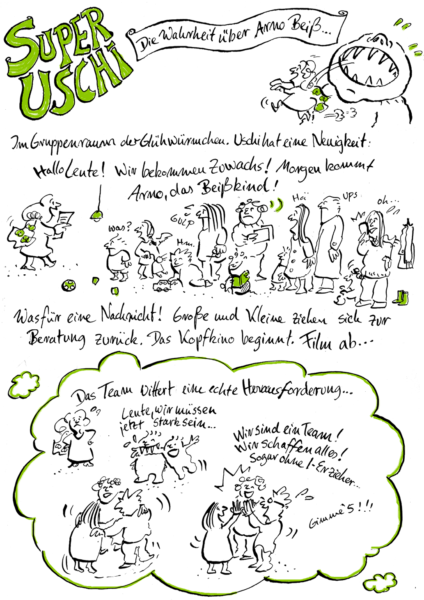 SUPER
USCHI
Die Wahrheit über Arno Beiß...
Im Gruppenraum der Glühwürmchen. Uschi hat eine Neuigkeit:
Hallo Leute! Wir bekommen Zuwachs! Morgen kommt
Arno, das Beißkind!
was?
Hm..
Gulp
Hoi
UPS.
oh..
Was für eine Nachricht! Große und Kleine ziehen sich zur
Beratung zurück. Das Kopfkino beginnt. Film ab...
Das Team wittert eine echte Herausforderung...
Leute, wir müssen
jetzt stark sein...
Wir sind ein Team!
Wir schaffen alles!
Sogar ohne
Gimme 5!!!